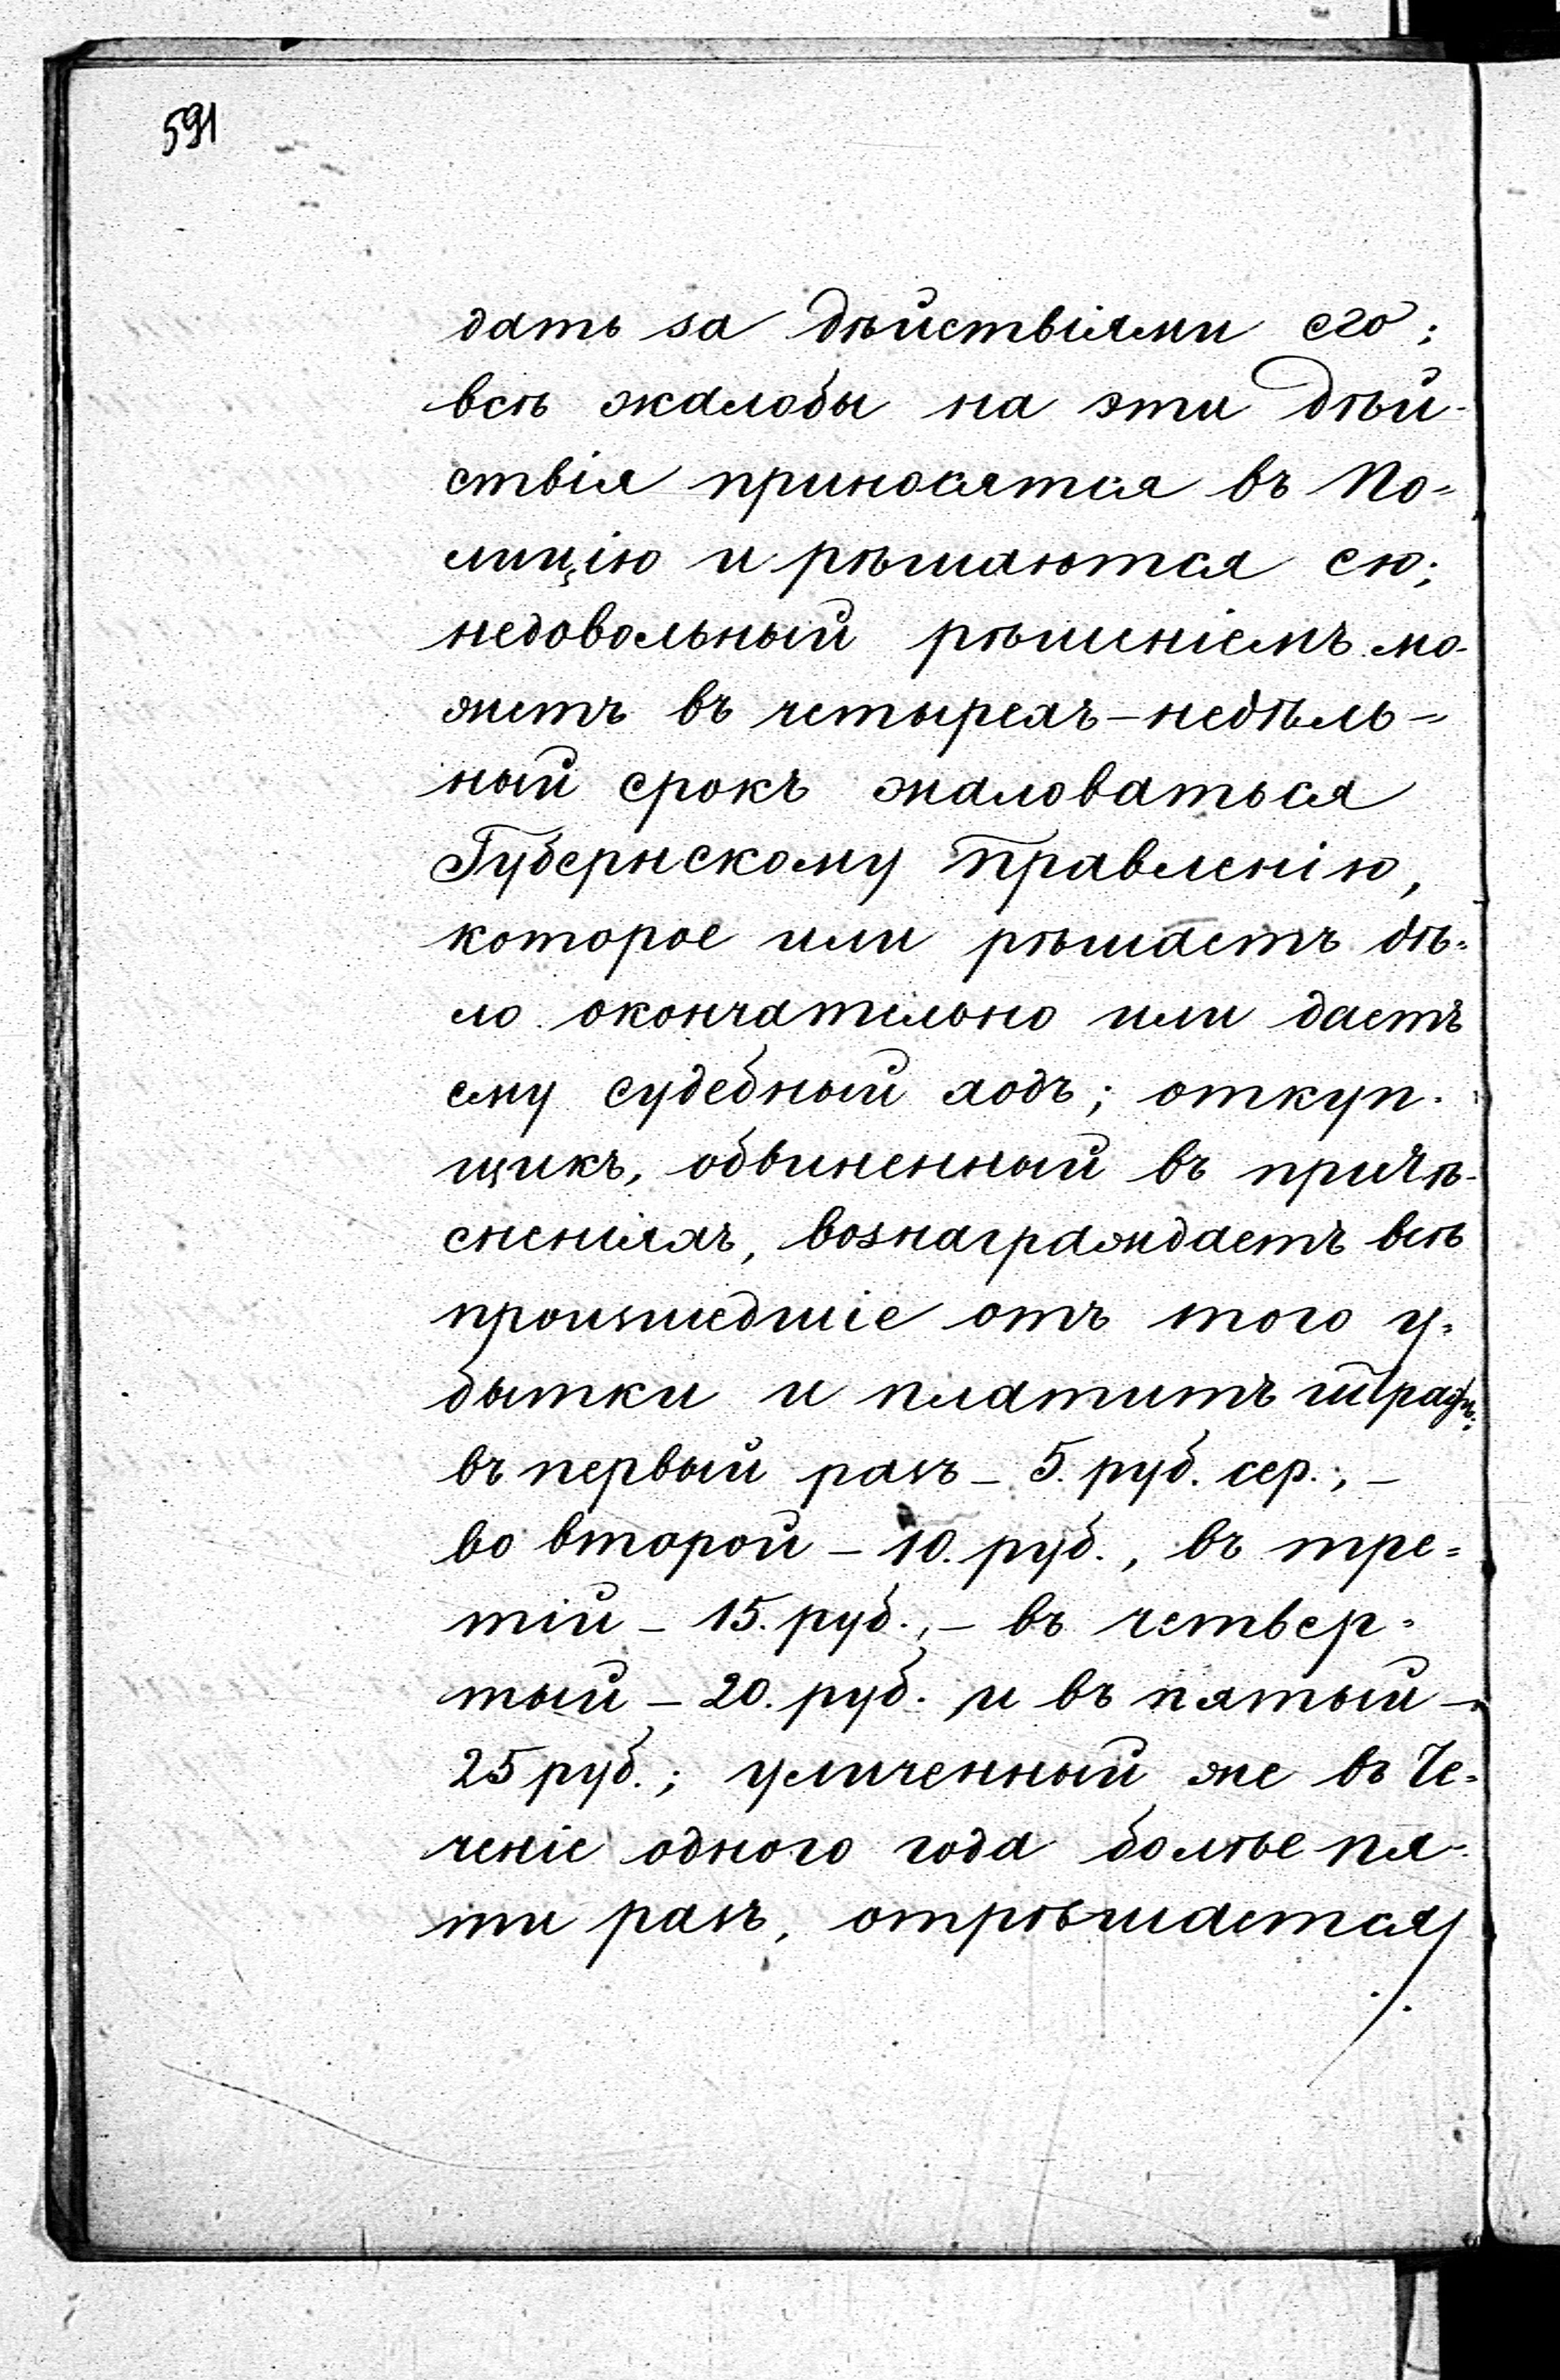 591
дать за дѣйствіями его;
всѣ жалобы на эти дѣй-
ствія приносятся въ По=
лицію и рѣшаются ею;
недовольный рѣшеніемъ мо-
жетъ въ четырехъ-недѣль=
ный срокъ жаловаться
Губернскому Правленію,
которое или рѣшаетъ дѣ=
ло окончательно или даетъ
ему судебный ходъ; откуп-
щикъ, обвиненный въ притѣ-
сненіяхъ, вознаграждаетъ всѣ
происшедшіе отъ того у=
бытки и платитъ штрафъ:
въ первый разъ – 5. руб. сер., –
во второй – 10. руб., въ тре=
тій – 15. руб., – въ четвер=
тый – 20. руб. и въ пятый –
25 руб.; уличенный же въ те=
ченіе одного года болѣе пя-
ти разъ, отрѣшается
./.